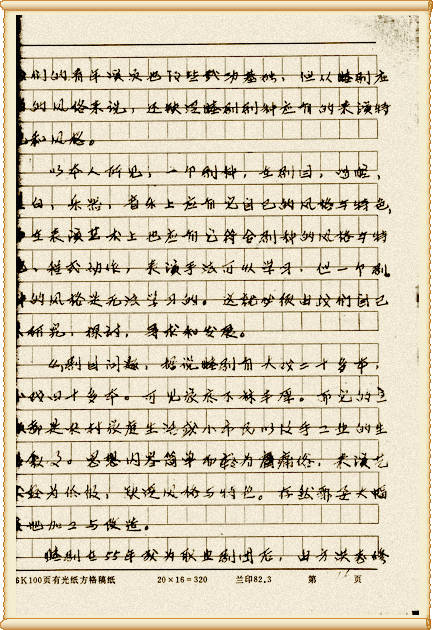 们的青年演员也该些武功基础，但从睦剧应
的风格来说，还缺乏睦剧剧种应有的表演特
色和风格。
以本人所见，一个剧种，在剧目，唱腔，
白，乐器，音乐上应有它自己的风格与特色，
在表演艺术上也应有它符合剧种的风格与特
，程式动作，表演手法可以学习，但一个剧
种的风格是无法学习的。这就必须由我们自己
研究，探讨，寻求和发展。
剧目问题，据说睦剧有大戏二十多本，
小戏四十多本。可见底不算丰厚。而它的
都是农村家庭生活或小市民以及手工业的生
。思想内容简单而较为，表演艺
较为，缺乏风格与特色。存然需要大幅
地加工与改造。
睦剧在55年成为职业剧团后，由方洪
6K100页有光纸方格稿纸 20×16=320 兰印82.3 第 页